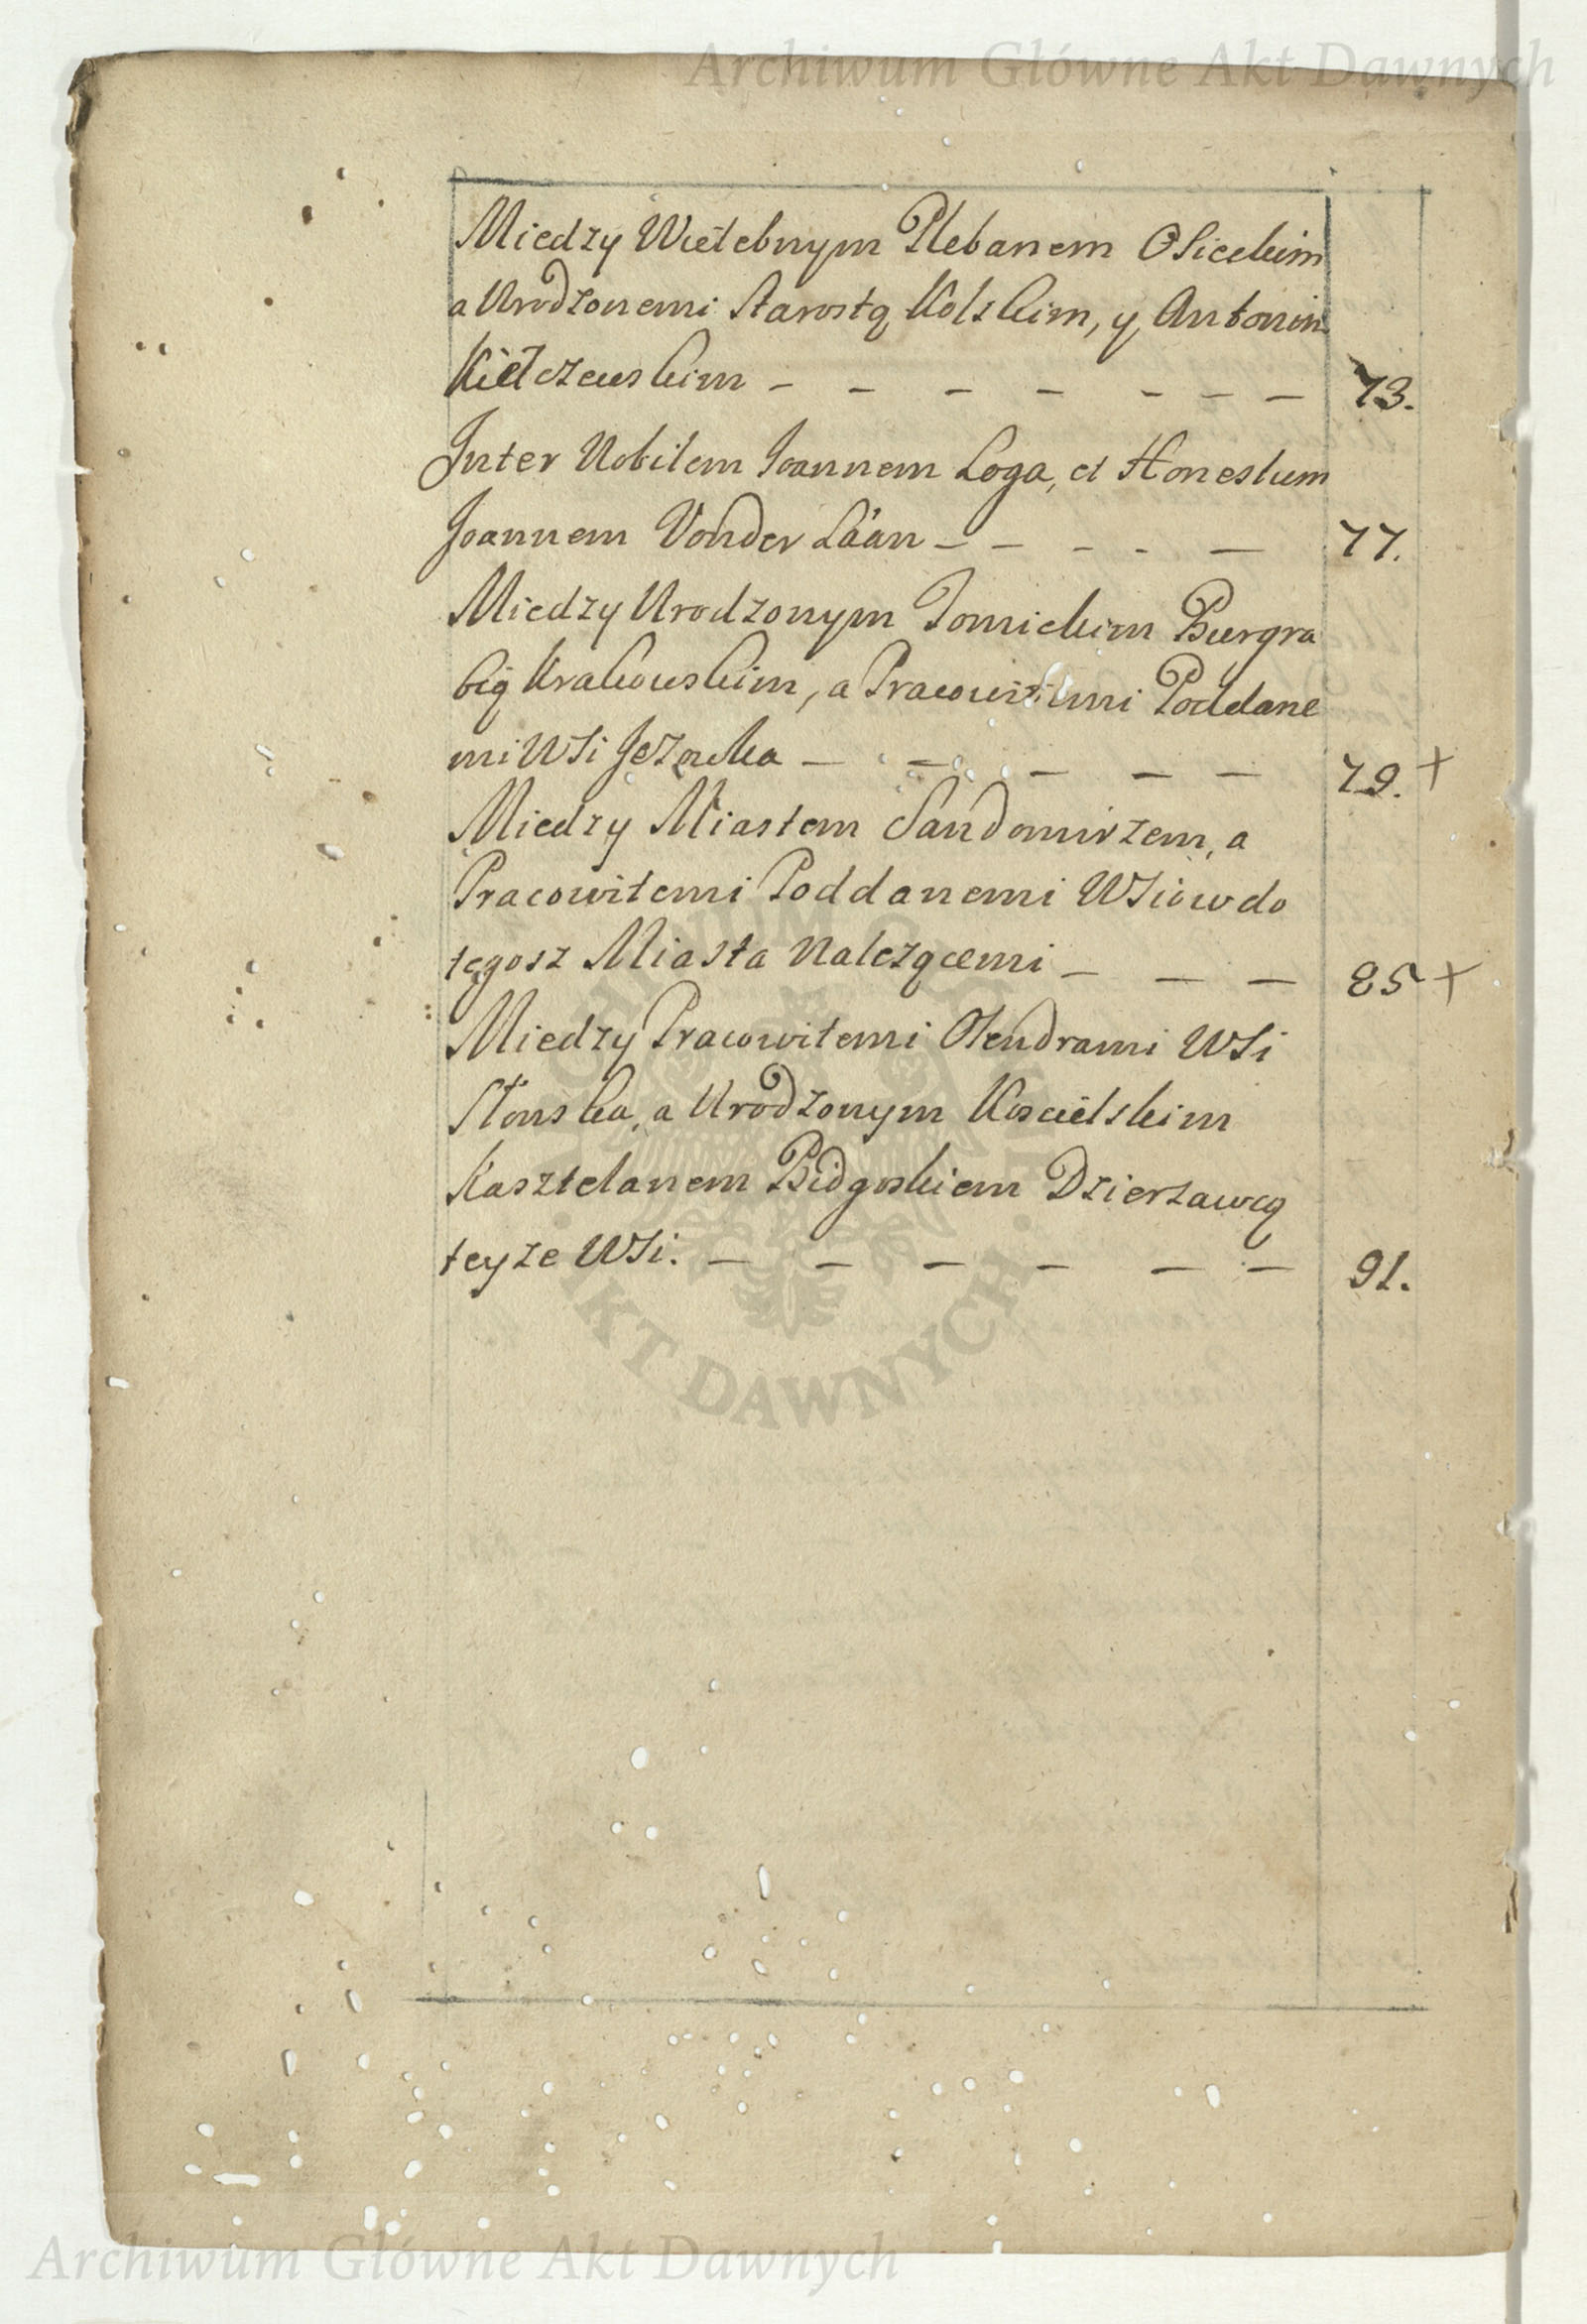 Archiwum Główne Akt Dawnych
Miedzy Wielebnym Plebanem Osieckim
a Urodzonemi Starostą Kolskim, y Antonim
Kiełczewskim - - - - - - - 73.
Inter Nobilem Joannem Loga, et Honestum
Joannem Vonder Lään - - - - - 77.
Miedzy Urodzonym Tomickim Burgra
bią Krakowskim, a Pracowitemi Poddane
mi WSi - - - - - 79. +
Miedzy Miastem Sandomirzem, a
Pracowitemi Poddanemi WSiow do
tegosz Miasta Nalezącemi - - - 85 +
Miedzy Pracowitemi Olendrami WSi
Słonska, a Urodzonym Koscielskim
Kasztelanem Bidgoskiem Dzierzawcą
teyze WSi. - - - - - - 91.
ARCHIWUM GŁÓWNE AKT DAWNYCH
Archiwum Główne Akt Dawnych